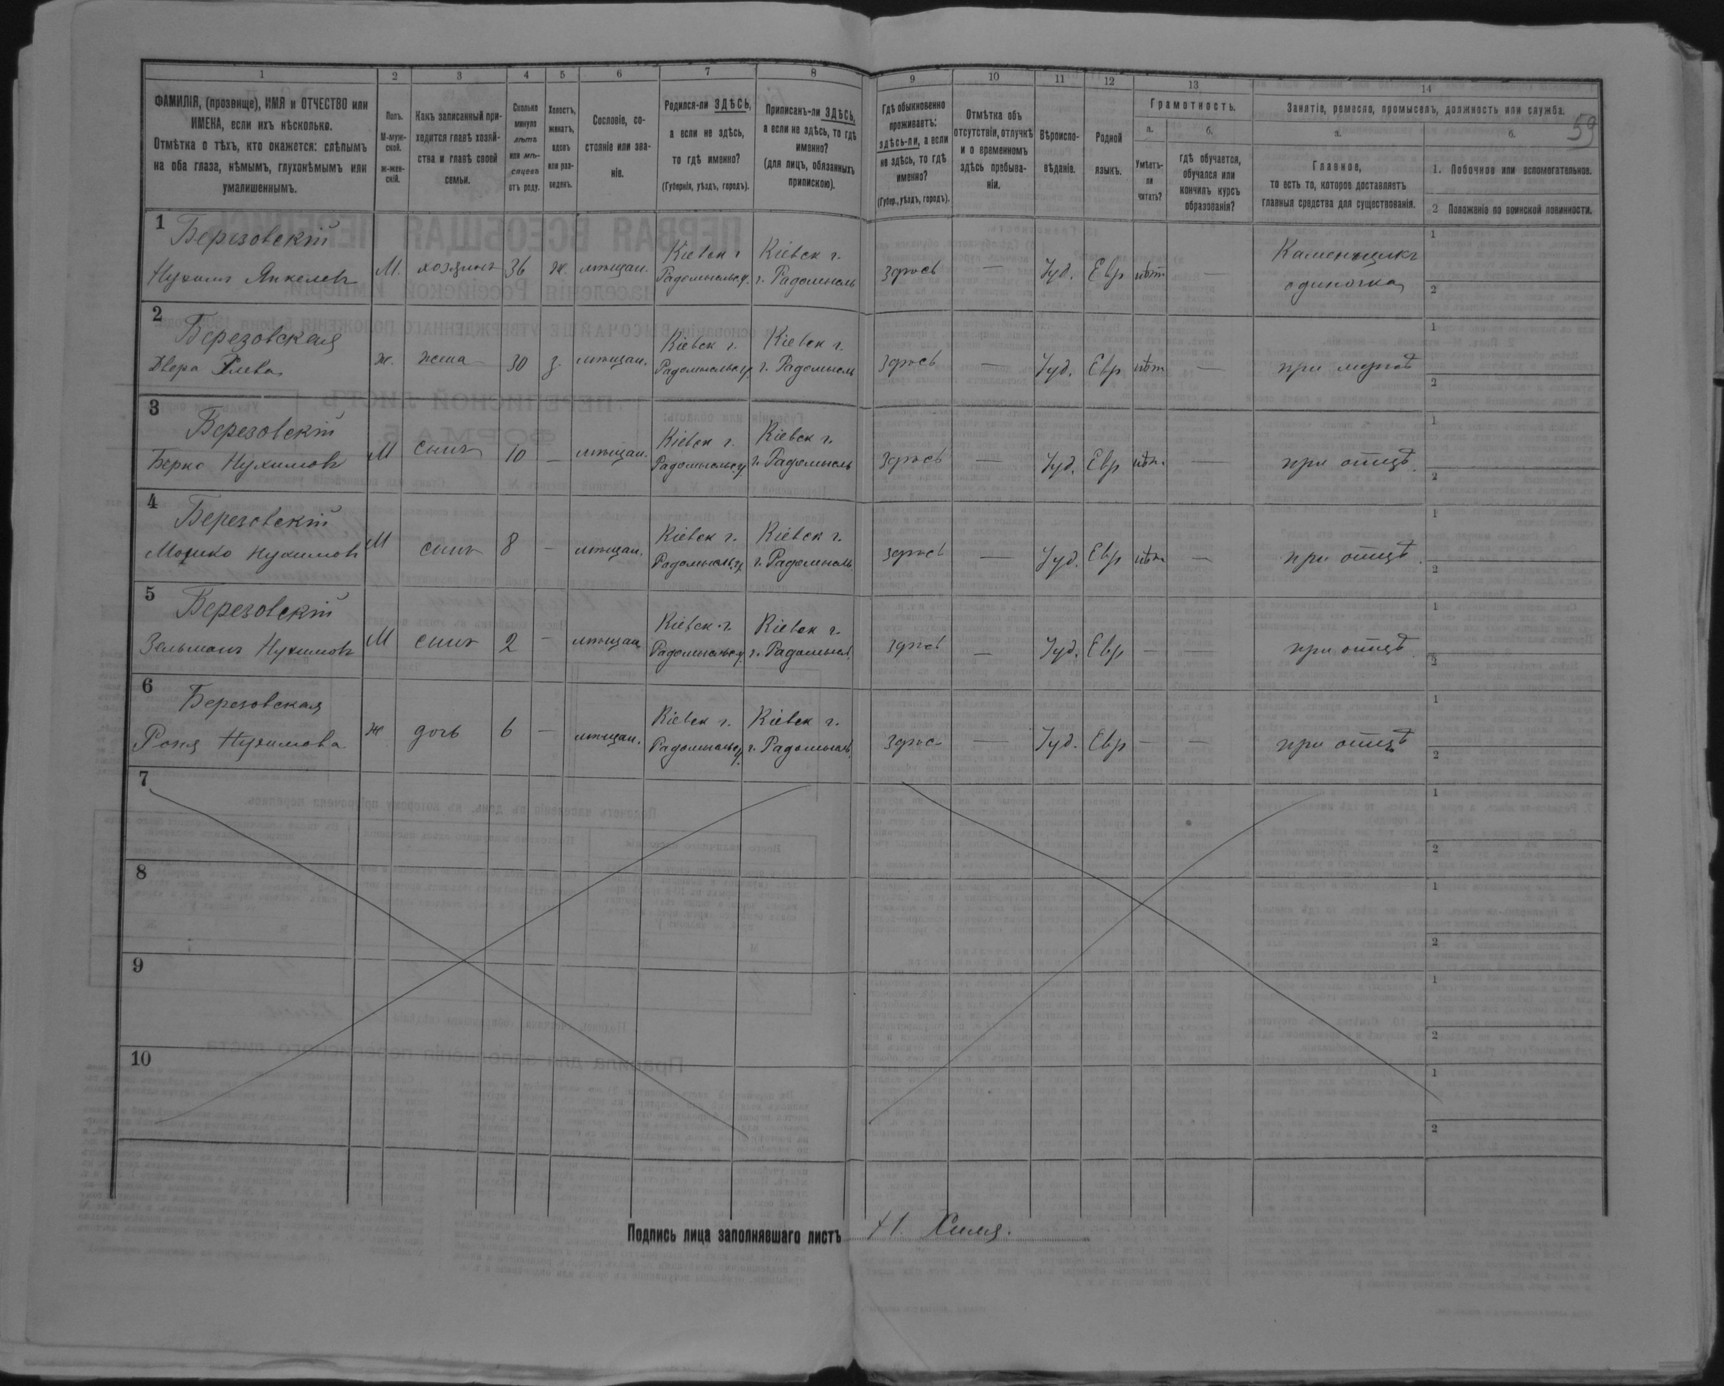 1 2 3 4 5 6 7 8 9 10 11 12 13 14
ФАМИЛІЯ, (прозвище), ИМЯ и ОТЧЕСТВО или
ИМЕНА, если ихъ нѣсколько.
Отмѣтка о тѣхъ, кто окажется: слѣпымъ
на оба глаза, нѣмымъ, глухонѣмымъ или
умалишеннымъ.
Полъ.
М-муж-
ской.
ж-жен-
скій.
Какъ записанный при-
ходится главѣ хозяй-
ства и главѣ своей
семьи.
Сколько
минуло
лѣтъ
или мѣ-
сяцевъ
отъ роду.
Холостъ,
женатъ,
вдовъ
или раз-
веденъ.
Сословіе, со-
стояніе или зва-
ніе.
Родился-ли ЗДѢСЬ,
а если не здѣсь,
то гдѣ именно?
(Губернія, уѣздъ, городъ).
Приписанъ-ли ЗДѢСЬ,
а если не здѣсь, то гдѣ
именно?
(для лицъ, обязанныхъ
припискою).
Гдѣ обыкновенно
проживаетъ:
здѣсь-ли, а если
не здѣсь, то гдѣ
именно?
(Губер., уѣздъ, городъ).
Отмѣтка объ
отсутствіи, отлучкѣ
и о временномъ
здѣсь пребыва-
ніи.
Вѣроиспо-
вѣданіе.
Родной
языкъ.
Грамотность.
а. б.
Умѣетъ-
ли
читать?
гдѣ обучается,
обучался или
кончилъ курсъ
образованія?
Занятіе, ремесло, промыселъ, должность или служба.
59
а. б.
Главное,
то есть то, которое доставляетъ
главныя средства для существованія.
1. Побочное или вспомогательное.
2 Положеніе по воинской повинности.
1 Березовскій Кіевск г. Кіевск г. Каменщикъ 1
Нухимъ Янкелевъ М. хозяинъ 36 ж. мѣщан. Радомысльск. г. Радомысль здѣсь — Іуд. Евр нѣт — одиночка 2
2 Березовская Кіевск г. Кіевск г. 1
Двора ж. жена 30 з. мѣщан. Радомысльск г. Радомысль здѣсь — Іуд. Евр нѣт — при мужѣ 2
3 Березовскій Кіевск г. Кіевск г. 1
Берко Нухимовъ М сынъ 10 — мѣщан. Радомысльск г. Радомысль здѣсь — Іуд. Евр нѣт. — при отцѣ 2
4 Березовскій Кіевск г. Кіевск г. 1
Мошко Нухимовъ М сынъ 8 — мѣщан. Радомысльск г. Радомысль здѣсь — Іуд. Евр нѣт — при отцѣ 2
5 Березовскій Кіевск г. Кіевск г. 1
Зельманъ Нухимовъ М сынъ 2 — мѣщан. Радомысльск г. Радомысль здѣсь — Іуд. Евр — — при отцѣ 2
6 Березовская Кіевск г. Кіевск г. 1
Нухимова ж дочь 6 — мѣщан. Радомысльск г. Радомысль здѣсь — Іуд. Евр — — при отцѣ 2
7 1
2
8 1
2
9 1
2
10 1
2
Подпись лица заполнявшаго листъ